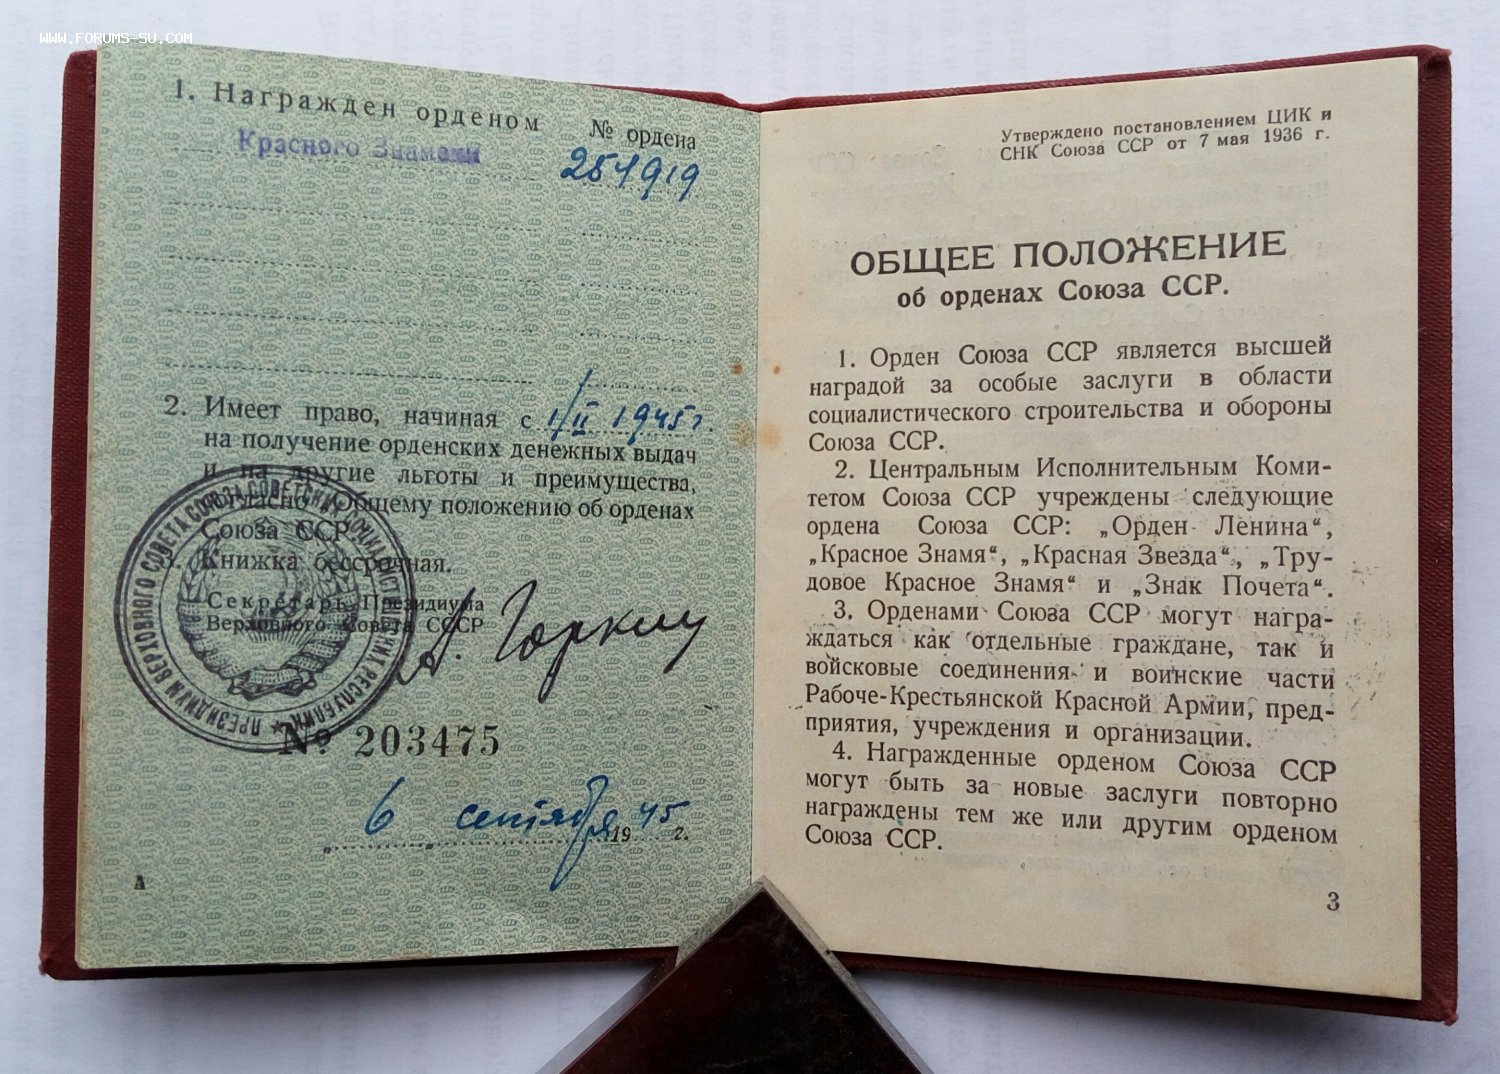 WWW.FORUMS-SU.COM
1. Награжден орденом № ордена
Красного Знамени 254919
2. Имеет право, начиная с 1/II 1945 г.
на получение орденских денежных выдач
и на другие льготы и преимущества,
согласно Общему положению об орденах
Союза ССР.
3. Книжка бессрочная.
Секретарь Президиума
Верховного Совета СССР
А. Горкин
ПРЕЗИДИУМ ВЕРХОВНОГО СОВЕТА СОЮЗА СОВЕТСКИХ СОЦИАЛИСТИЧЕСКИХ РЕСПУБЛИК
№ 203475
6 сентября 1945 г.
А
Утверждено постановлением ЦИК и
СНК Союза ССР от 7 мая 1936 г.
ОБЩЕЕ ПОЛОЖЕНИЕ
об орденах Союза ССР.
1. Орден Союза ССР является высшей
наградой за особые заслуги в области
социалистического строительства и обороны
Союза ССР.
2. Центральным Исполнительным Коми-
тетом Союза ССР учреждены следующие
ордена Союза ССР: „Орден Ленина“,
„Красное Знамя“, „Красная Звезда“, „Тру-
довое Красное Знамя“ и „Знак Почета“.
3. Орденами Союза ССР могут награ-
ждаться как отдельные граждане, так и
войсковые соединения и воинские части
Рабоче-Крестьянской Красной Армии, пред-
приятия, учреждения и организации.
4. Награжденные орденом Союза ССР
могут быть за новые заслуги повторно
награждены тем же или другим орденом
Союза ССР.
3